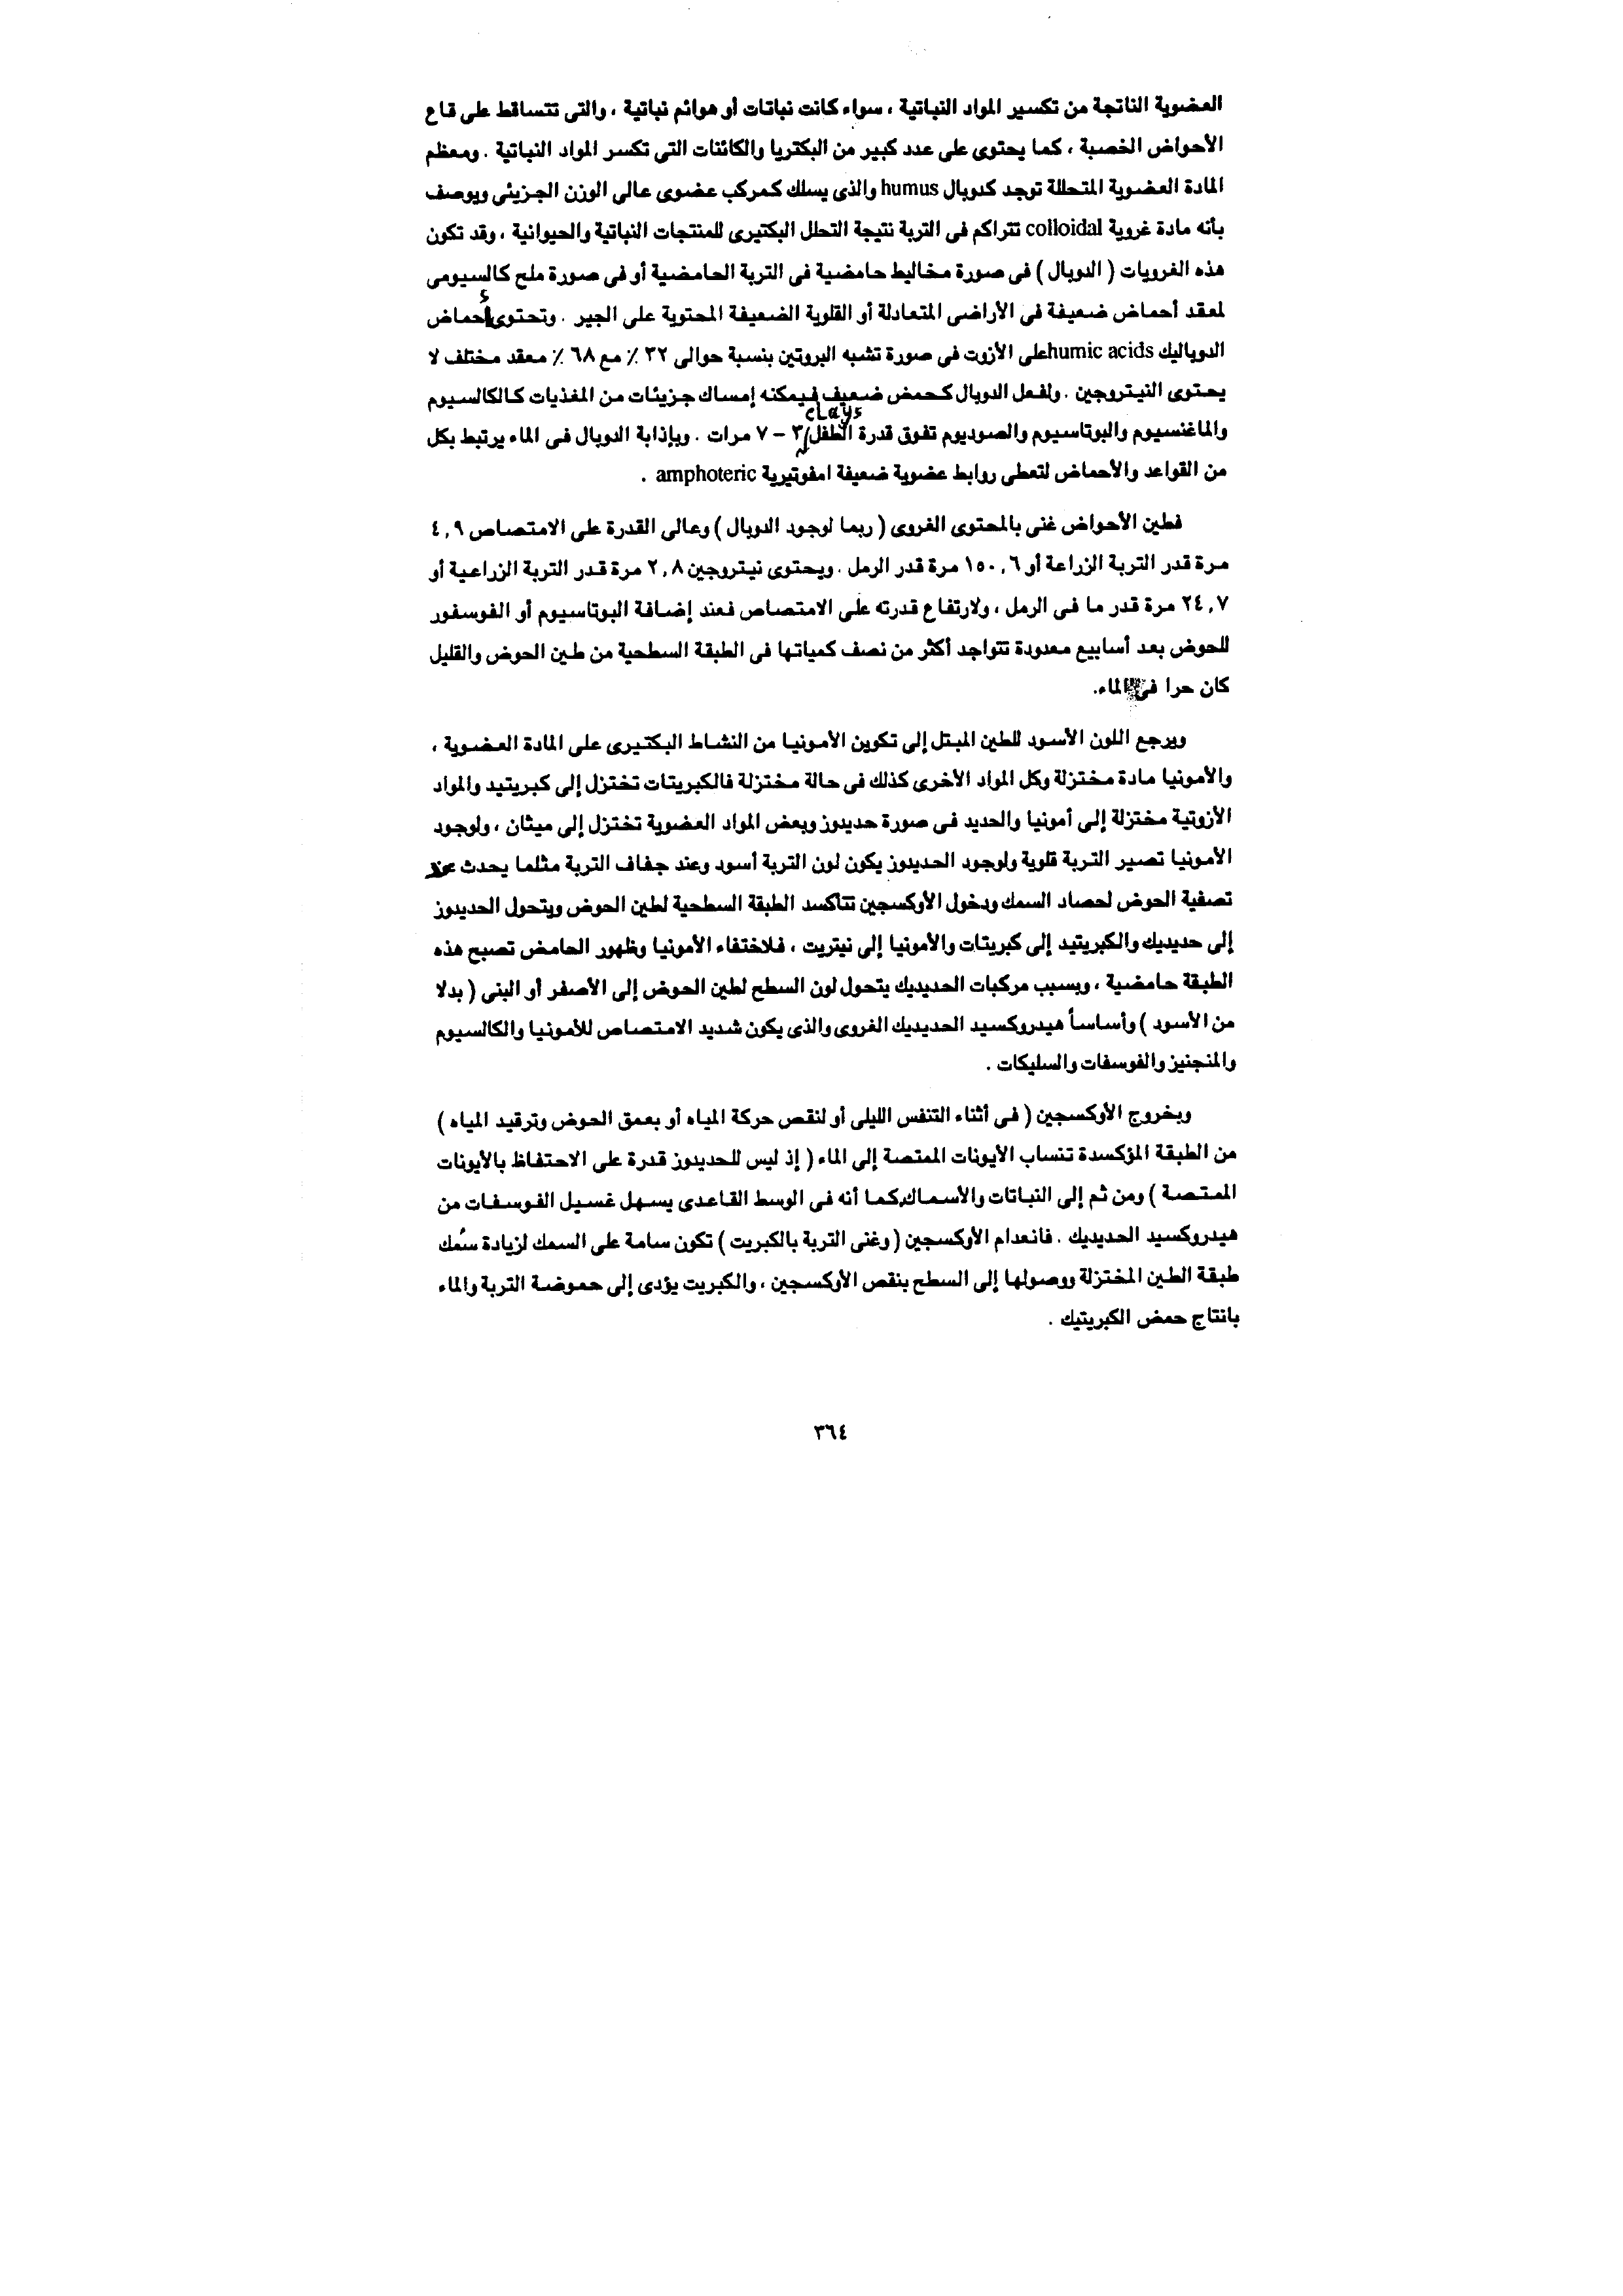 العضوية الناتجة من تكسير المواد النباتية ، سواء كانت نباتات أو هوائم نباتية ، والتى تتساقط على قاع
الأحواض الخصبة ، كما يحتوى على عدد كبير من البكتريا والكائنات التى تكسر المواد النباتية . ومعظم
المادة العضوية المتحللة توجد كدوبال humus والذى يسلك كمركب عضوى عالى الوزن الجزيئى ويوصف
بأنه مادة غروية colloidal تتراكم فى التربة نتيجة التحلل البكتيرى للمنتجات النباتية والحيوانية ، وقد تكون
هذه الغرويات ( الدوبال ) فى صورة مخاليط حامضية فى التربة الحامضية أو فى صورة ملح كالسيومى
لمعقد أحماض ضعيفة فى الأراضى المتعادلة أو القلوية الضعيفة المحتوية على الجير . وتحتوى أحماض
الدوباليك humic acids على الأزوت فى صورة تشبه البروتين بنسبة حوالى ٣٢ ٪ مع ٦٨ ٪ معقد مختلف لا
يحتوى النيتروجين . ولفعل الدوبال كحمض ضعيف فيمكنه إمساك جزيئات من المغذيات كالكالسيوم
والماغنسيوم والبوتاسيوم والصوديوم تفوق قدرة الطفل clays ٣ – ٧ مرات . وبإذابة الدوبال فى الماء يرتبط بكل
من القواعد والأحماض لتعطى روابط عضوية ضعيفة امفوتيرية amphoteric .
فطين الأحواض غنى بالمحتوى الغروى ( ربما لوجود الدوبال ) وعالى القدرة على الامتصاص ٤,٩
مرة قدر التربة الزراعة أو ١٥٠,٦ مرة قدر الرمل . ويحتوى نيتروجين ٢,٨ مرة قدر التربة الزراعية أو
٢٤,٧ مرة قدر ما فى الرمل ، ولارتفاع قدرته على الامتصاص فعند إضافة البوتاسيوم أو الفوسفور
للحوض بعد أسابيع معدودة تتواجد أكثر من نصف كمياتها فى الطبقة السطحية من طين الحوض والقليل
كان حرا فى الماء.
ويرجع اللون الأسود للطين المبتل إلى تكوين الأمونيا من النشاط البكتيرى على المادة العضوية ،
والأمونيا مادة مختزلة وكل المواد الأخرى كذلك فى حالة مختزلة فالكبريتات تختزل إلى كبريتيد والمواد
الأزوتية مختزلة إلى أمونيا والحديد فى صورة حديدوز وبعض المواد العضوية تختزل إلى ميثان ، ولوجود
الأمونيا تصير التربة قلوية ولوجود الحديدوز يكون لون التربة أسود وعند جفاف التربة مثلما يحدث عند
تصفية الحوض لحصاد السمك ودخول الأوكسجين تتاكسد الطبقة السطحية لطين الحوض ويتحول الحديدوز
إلى حديديك والكبريتيد إلى كبريتات والأمونيا إلى نيتريت ، فلاختفاء الأمونيا وظهور الحامض تصبح هذه
الطبقة حامضية ، وبسبب مركبات الحديديك يتحول لون السطح لطين الحوض إلى الأصفر أو البنى ( بدلا
من الأسود ) وأساسأ هيدروكسيد الحديديك الغروى والذى يكون شديد الامتصاص للأمونيا والكالسيوم
والمنجنيز والفوسفات والسليكات .
وبخروج الأوكسجين ( فى أثناء التنفس الليلى أو لنقص حركة المياه أو بعمق الحوض وترقيد المياه )
من الطبقة المؤكسدة تنساب الأيونات الممتصة إلى الماء ( إذ ليس للحديدوز قدرة على الاحتفاظ بالأيونات
الممتصة ) ومن ثم إلى النباتات والأسماك، كما أنه فى الوسط القاعدى يسهل غسيل الفوسفات من
هيدروكسيد الحديديك . فانعدام الأوكسجين ( وغنى التربة بالكبريت ) تكون سامة على السمك لزيادة سُمك
طبقة الطين المختزلة ووصولها إلى السطح بنقص الأوكسجين ، والكبريت يؤدى إلى حموضة التربة والماء
بانتاج حمض الكبريتيك .
٣٦٤